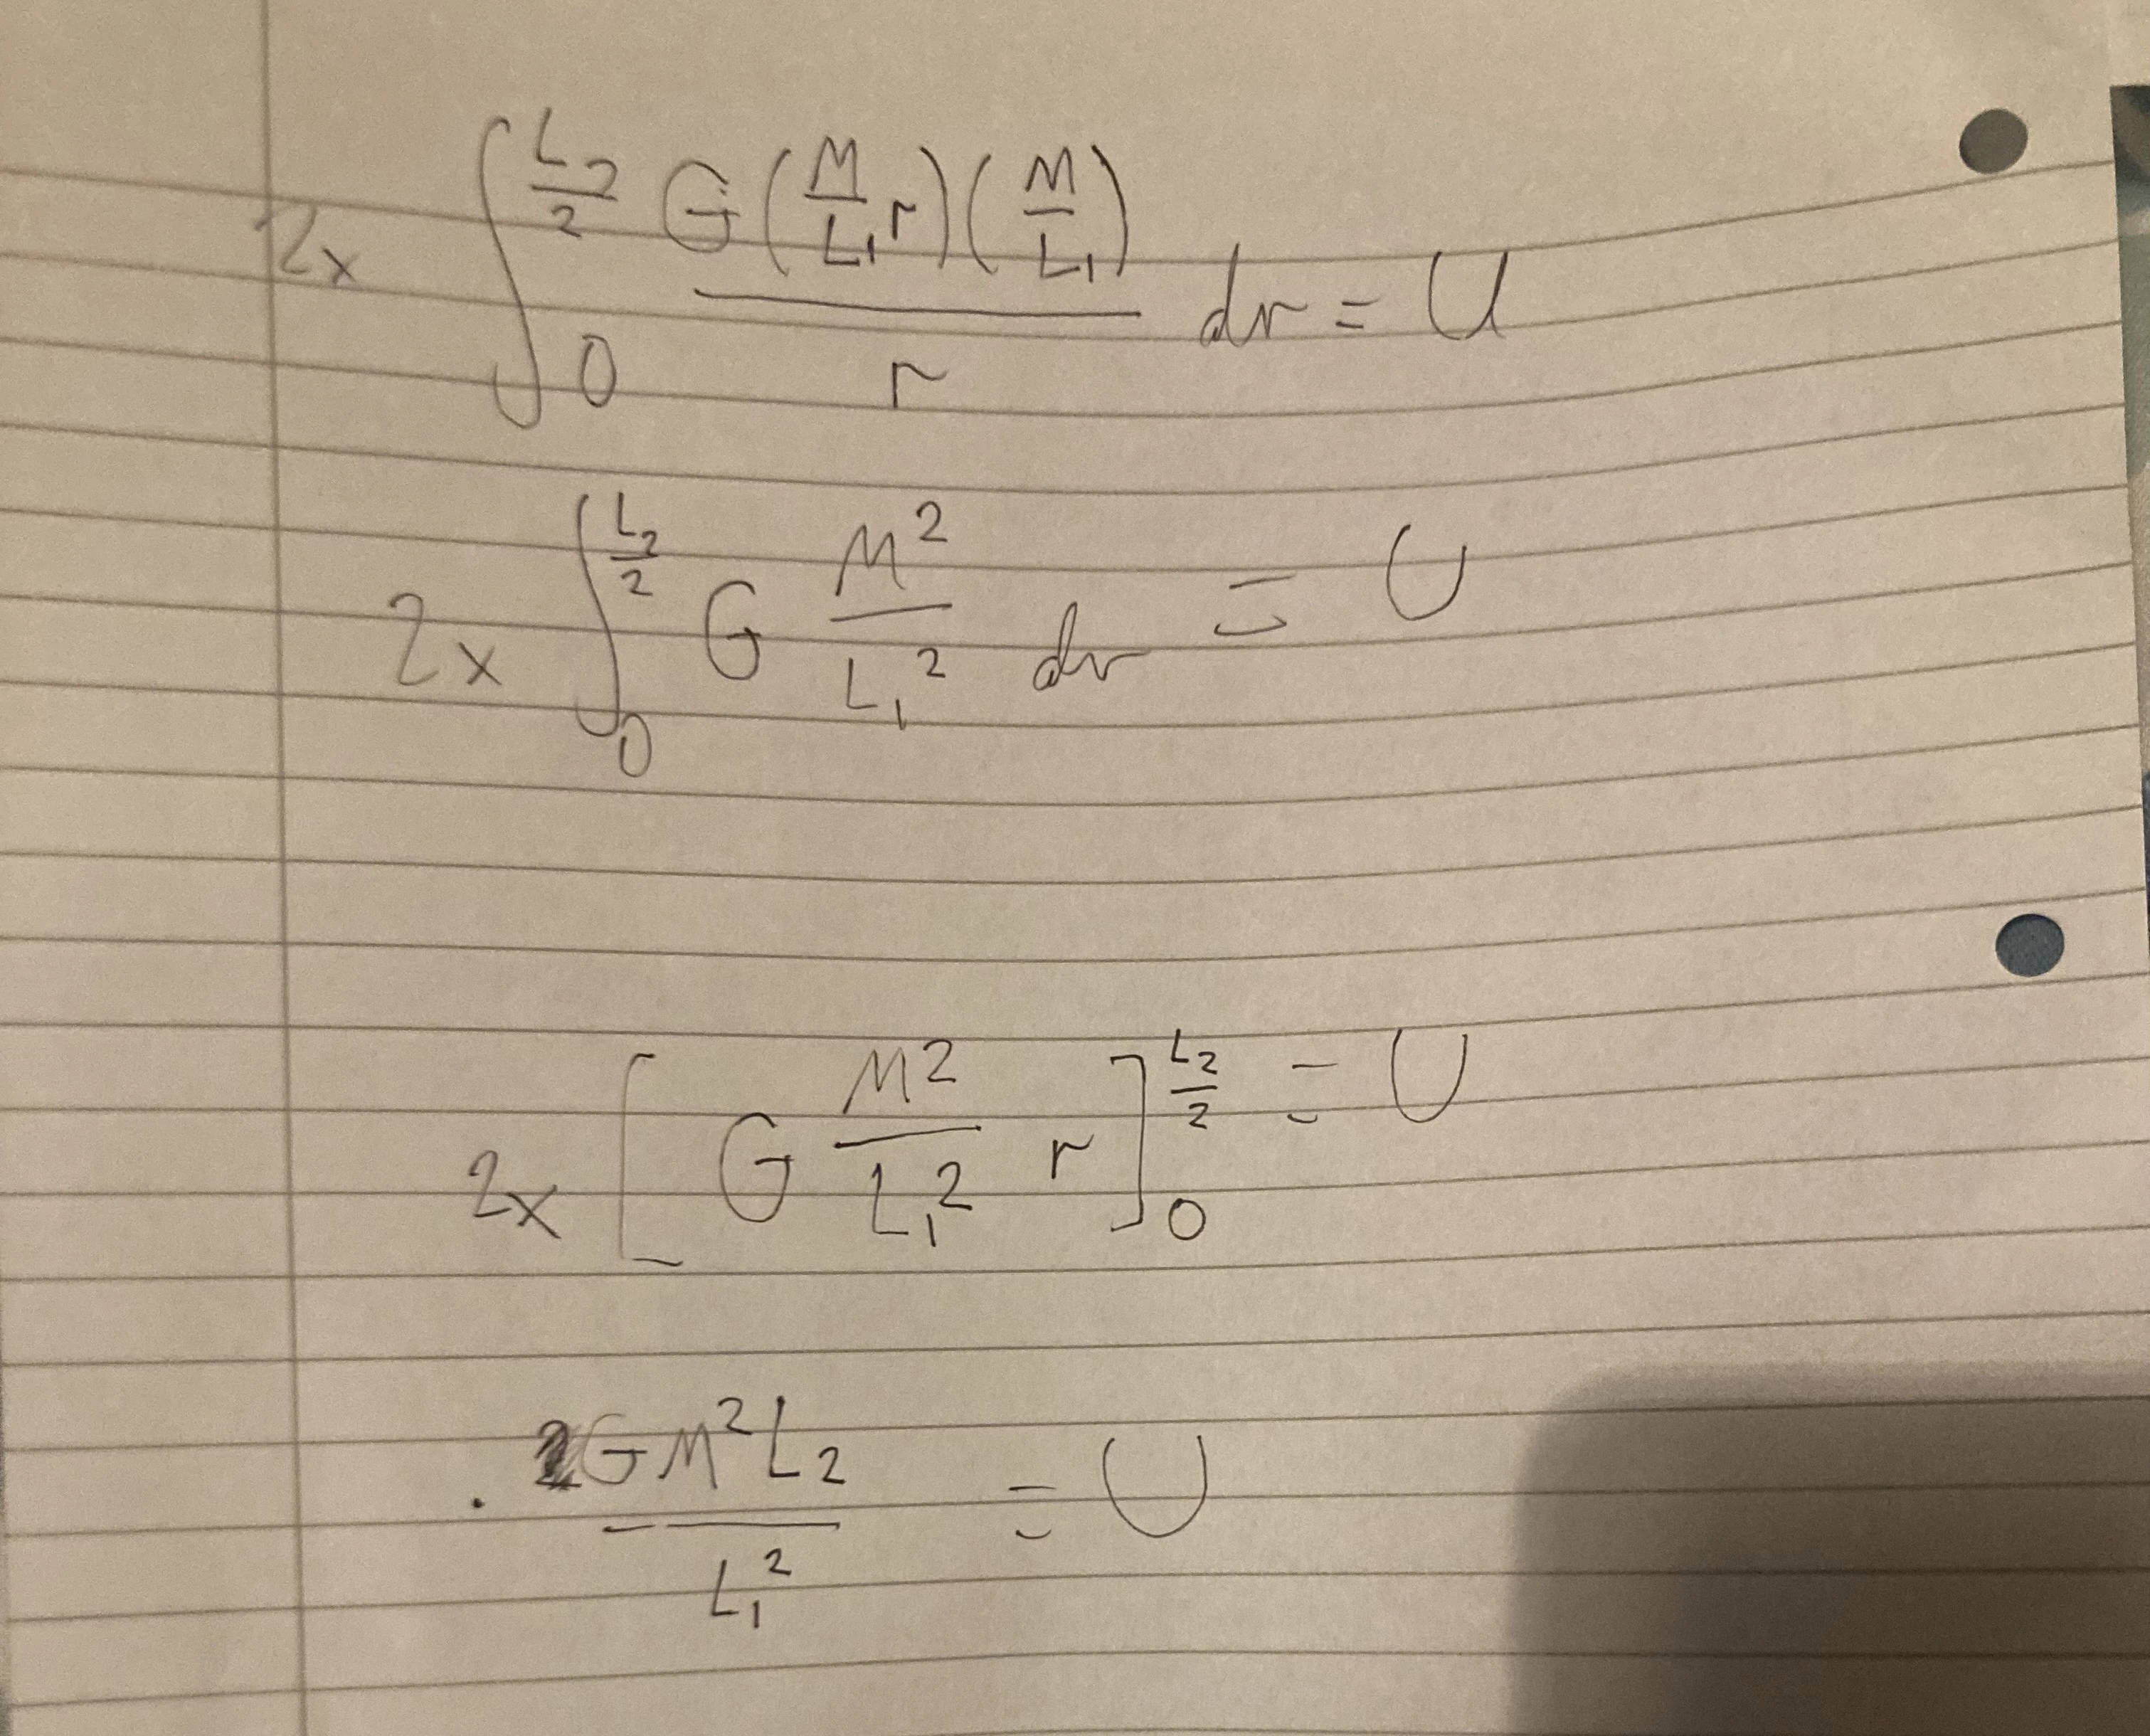 2x ∫₀^(L₂/2) G(M/L₁ r)(M/L₁) / r dr = U
2x ∫₀^(L₂/2) G M²/L₁² dr = U
2x [G M²/L₁² r]₀^(L₂/2) = U
GM²L₂/L₁² = U